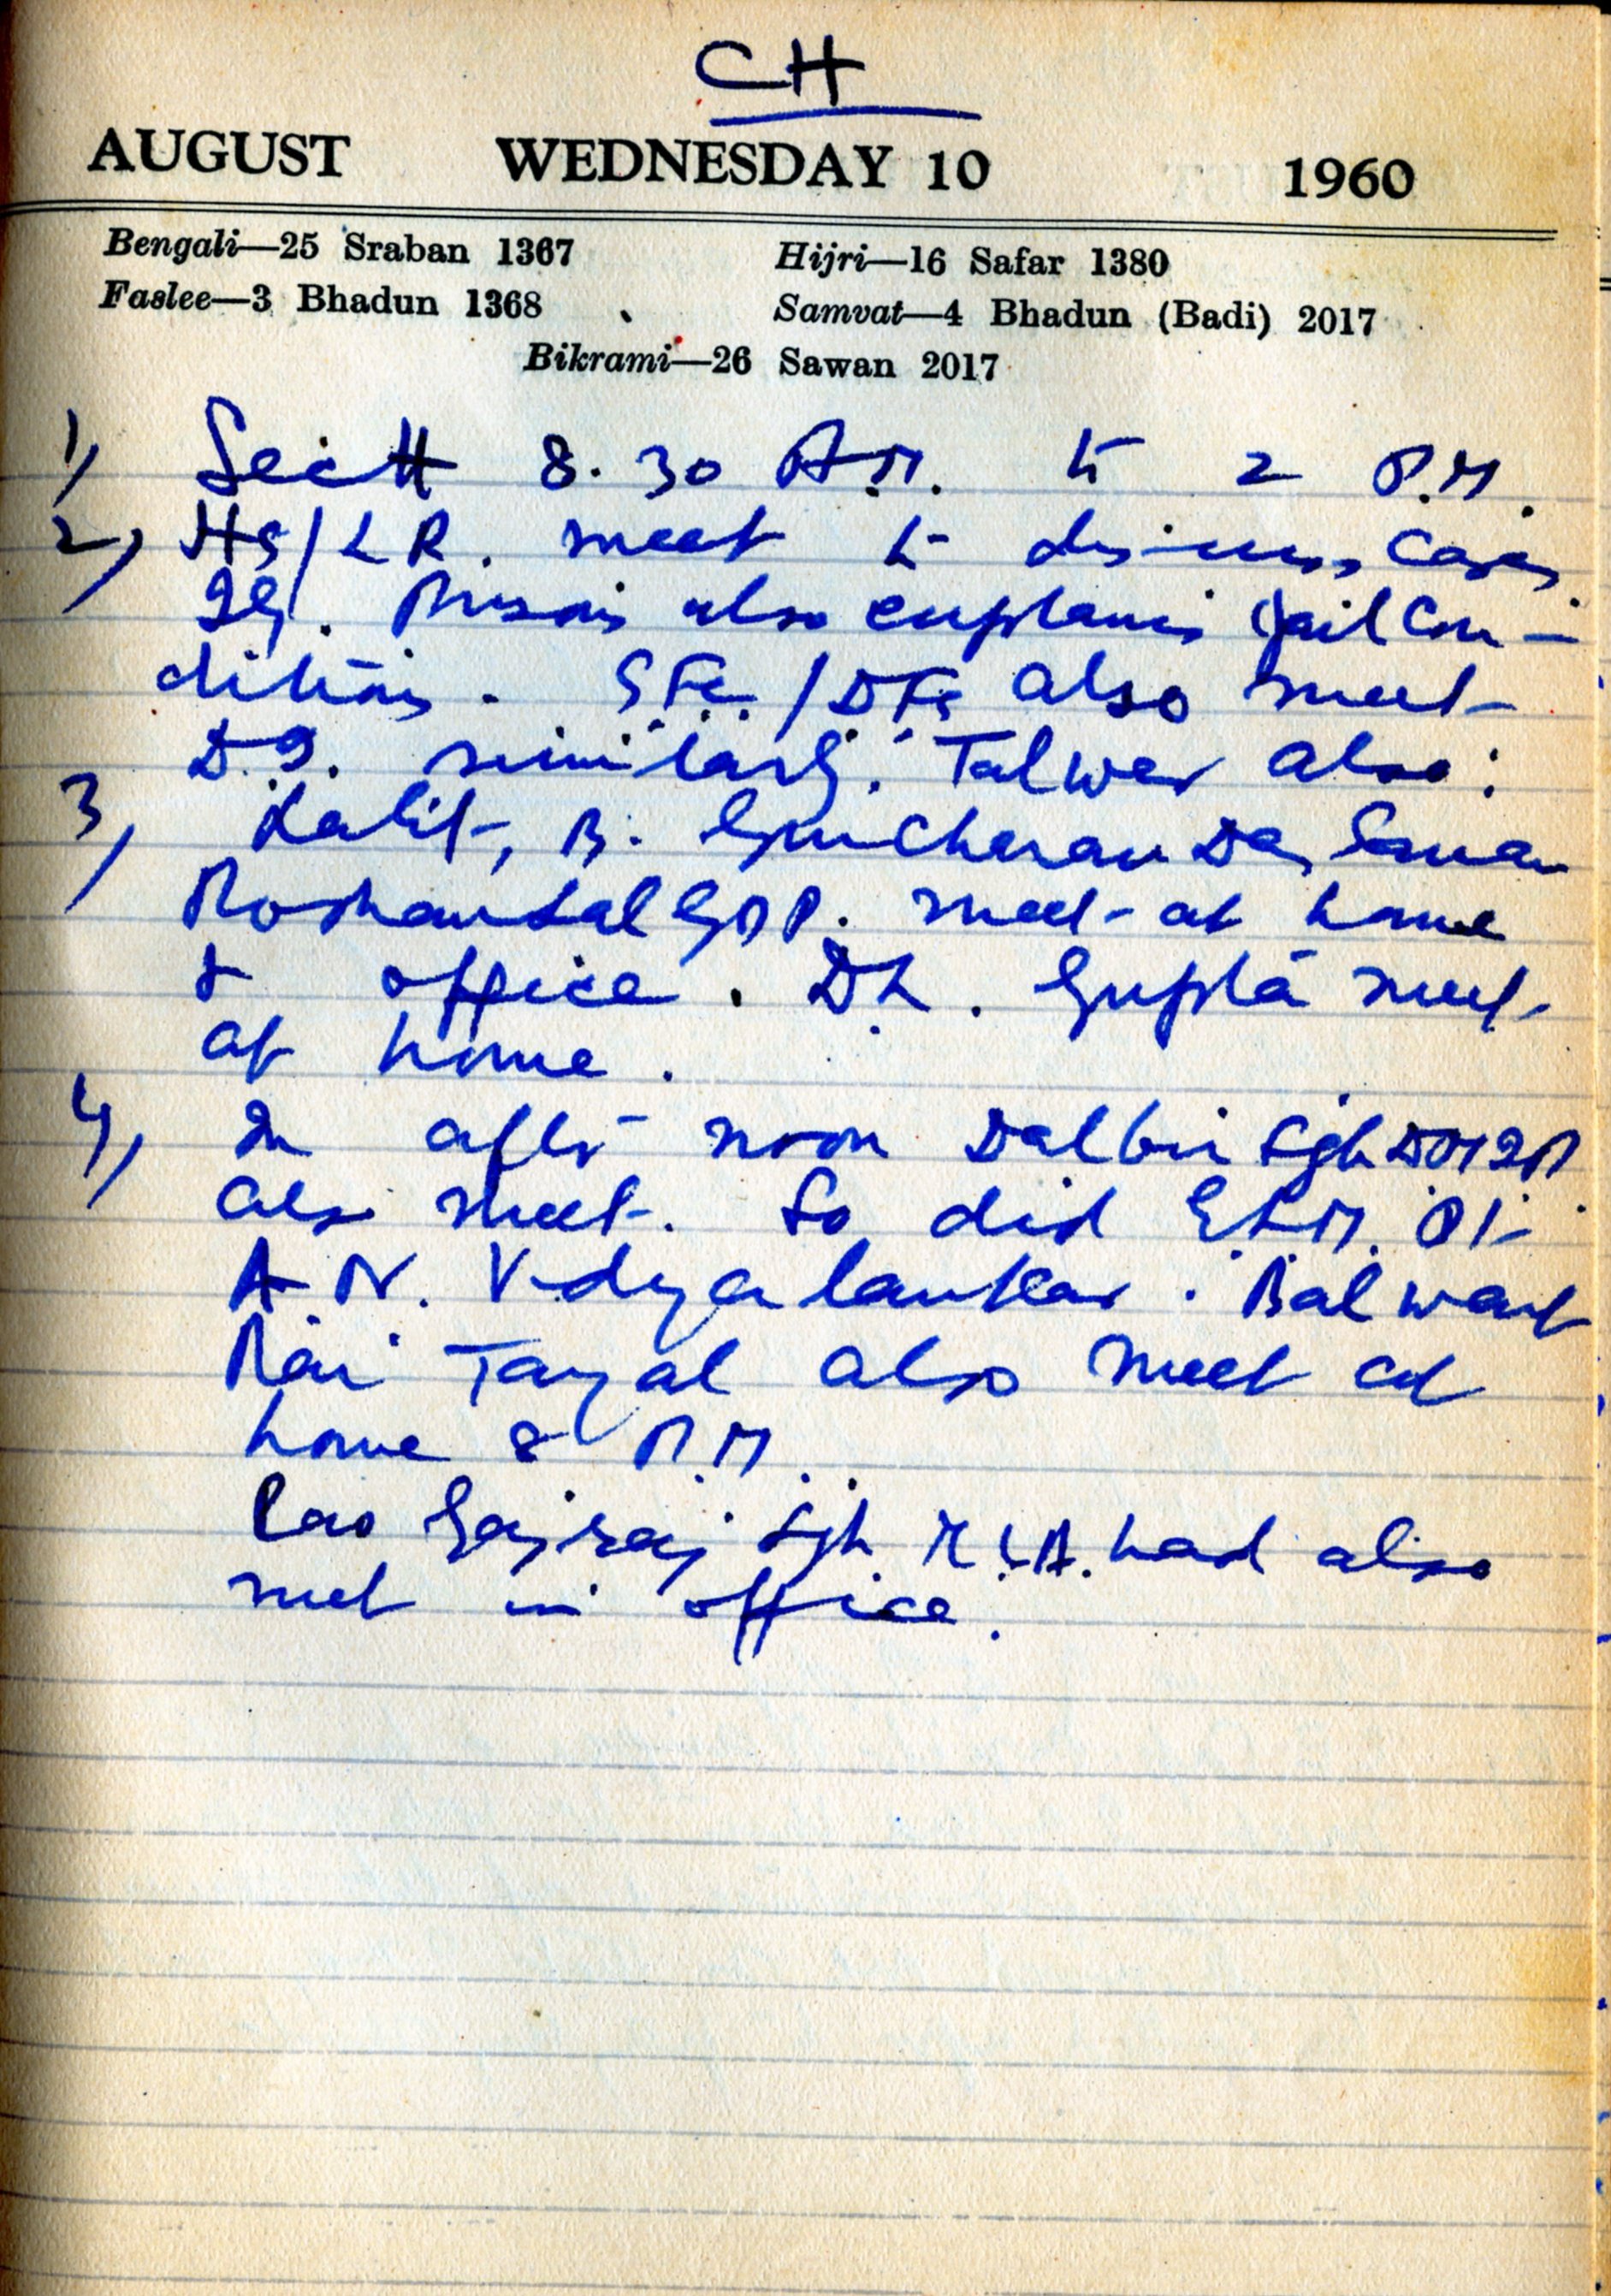 CH
AUGUST WEDNESDAY 10 1960
Bengali—25 Sraban 1367 Hijri—16 Safar 1380
Faslee—3 Bhadun 1368 Samvat—4 Bhadun (Badi) 2017
Bikrami—26 Sawan 2017
1) Sectt 8.30 A.M. to 2 P.M.
2) HS/LR. meet to discuss cases.
IG. Prisons also explains Jail Con-
ditions. also meet
D.I. similarly. Talwar also.
3) Lalit, B. Gurcharan Das,
Roshan Lal meet at home
& office. D.L. Gupta meet
at home.
4) In after noon Dalbir Sgh
also meet. So did E.L.M. Pt.
A.N. Vidyalankar. Balwant
Rai Tayal also meet at
home 8 P.M.
Rao Gajraj Sgh M.L.A. had also
met in office.